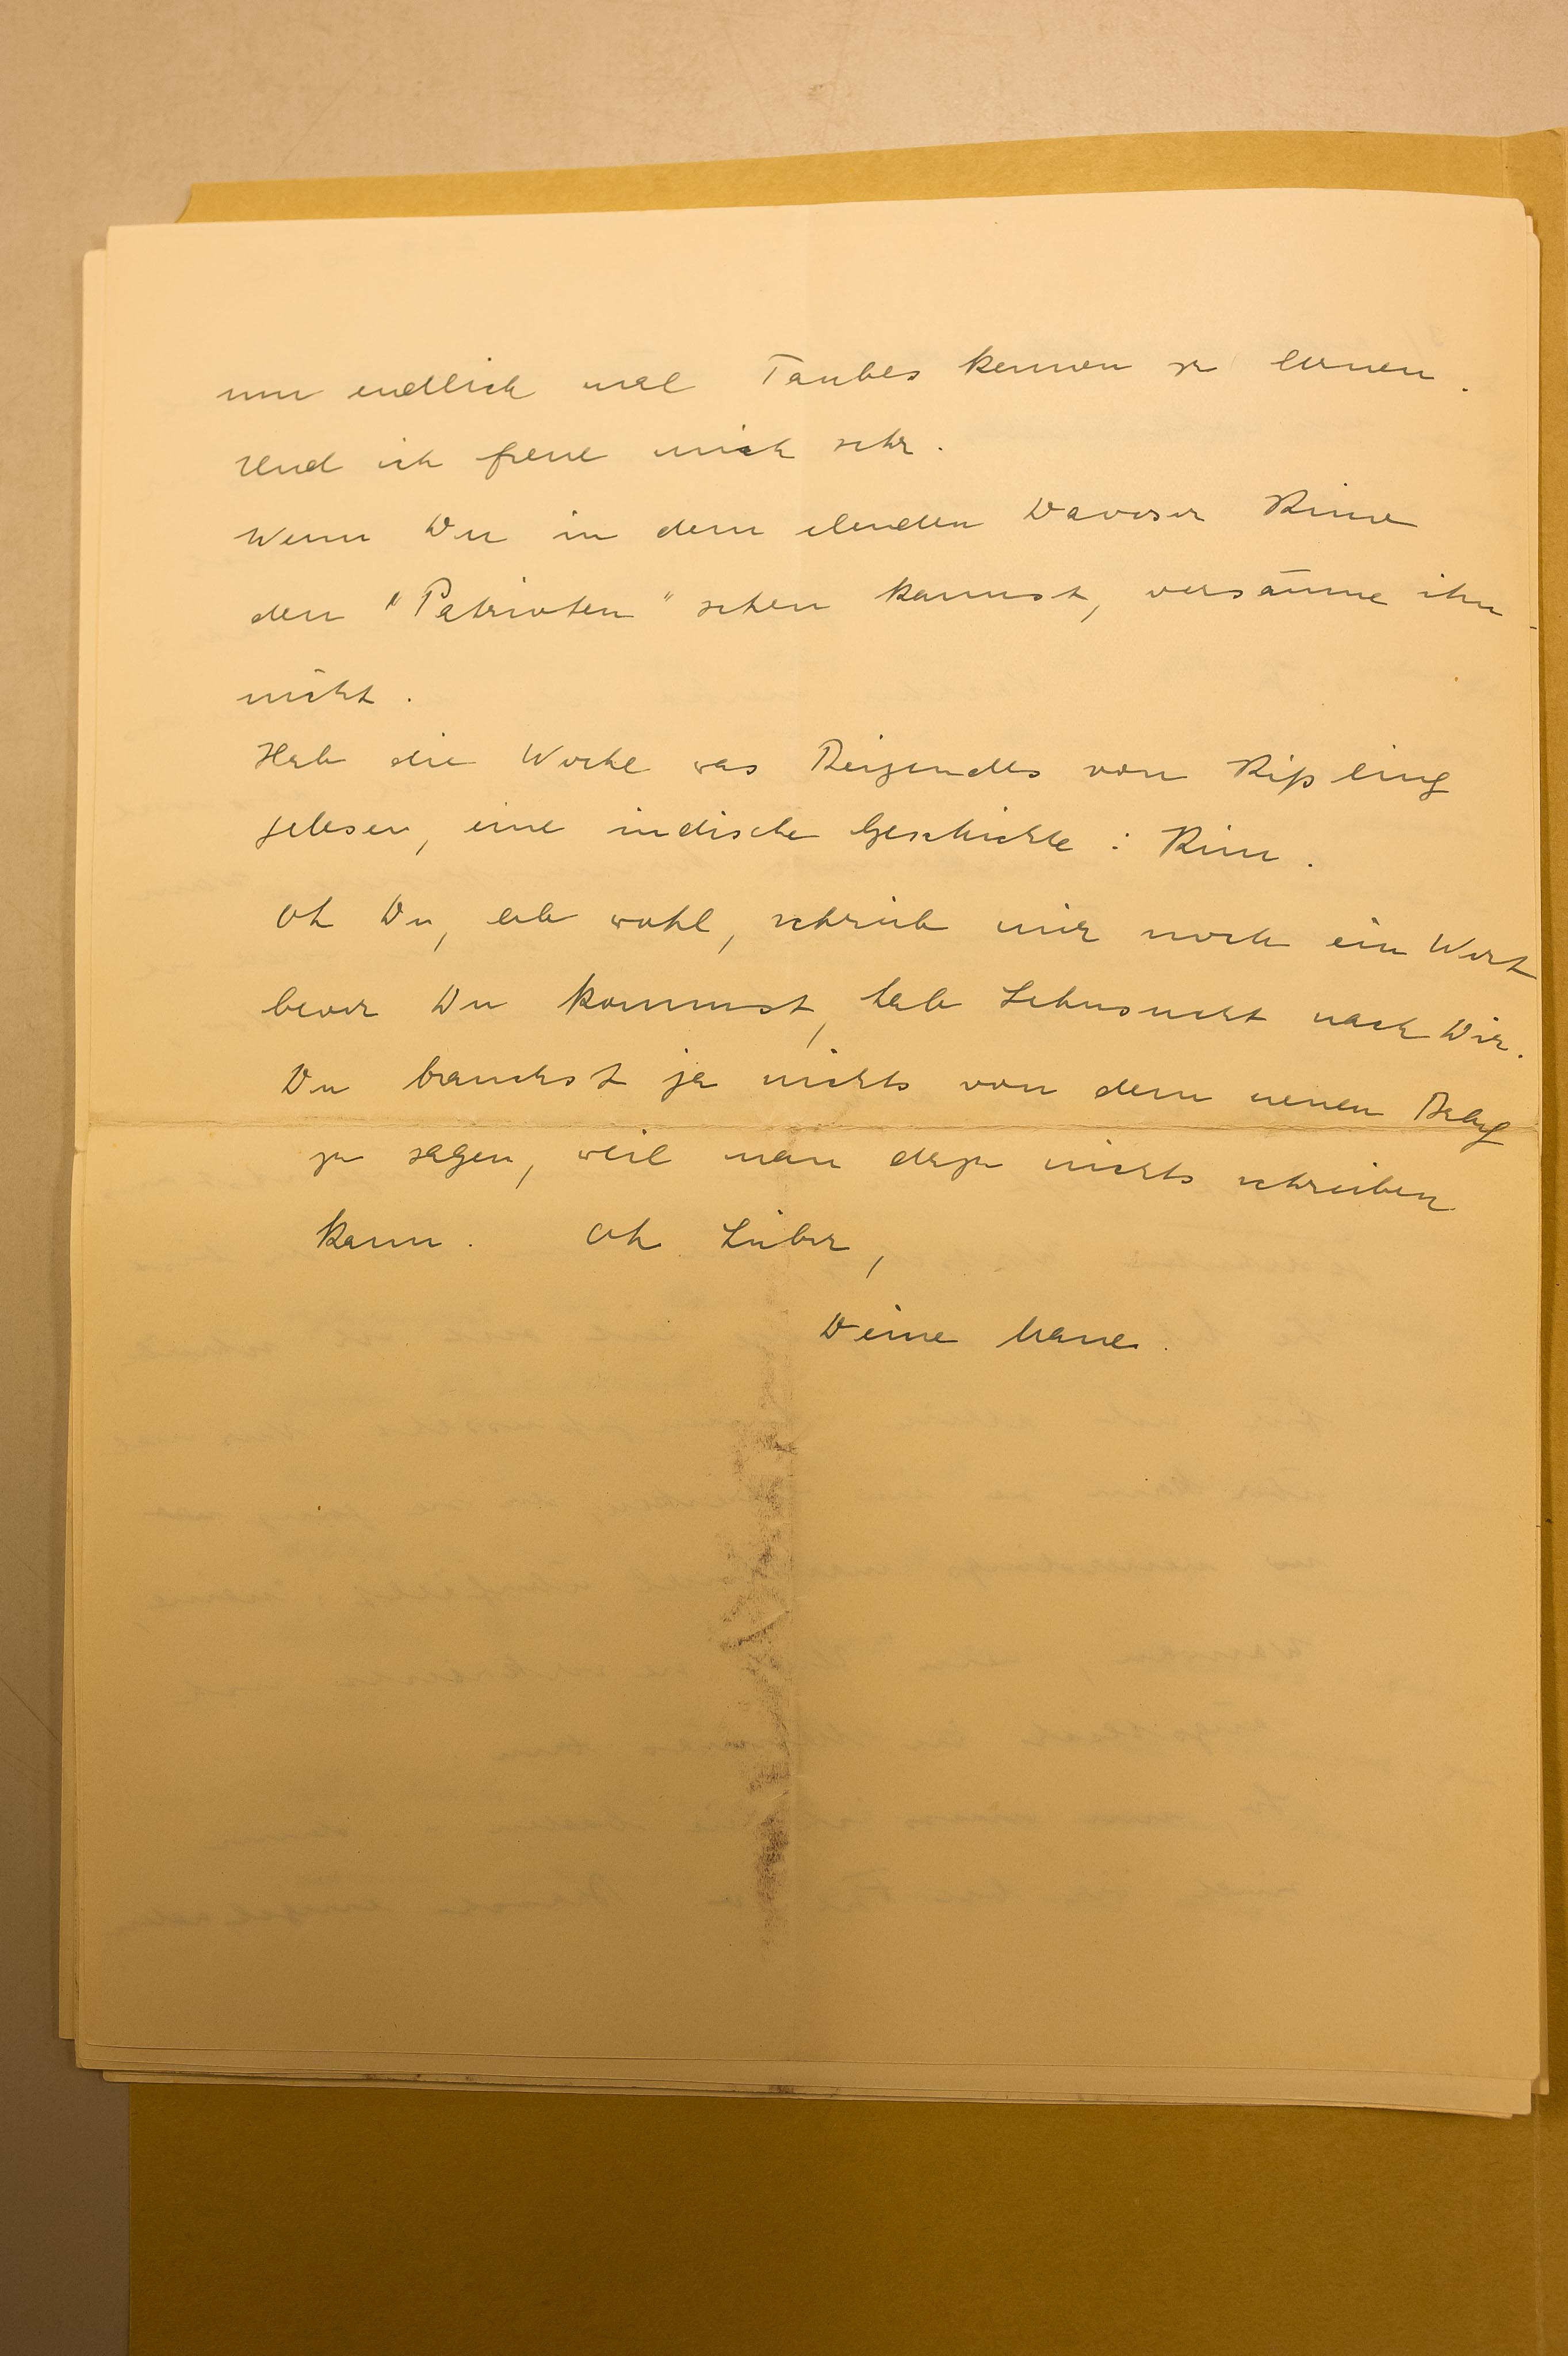 um endlich mal Taubes kennen zu lernen.
Und ich freue mich sehr.
Wenn Du in dem elenden Davoser Kino
den "Patrioten" sehen kannst, versäume ihn
nicht.
Hab die Woche was Reizendes von Kipling
gelesen, eine indische Geschichte: Kim.
Oh Du, leb wohl, schreib mir noch ein Wort
bevor Du kommst, hab Sehnsucht nach Dir.
Du brauchst ja nichts von dem neuen
zu sagen, weil man dazu nichts schreiben
kann. Oh Lieber,
Deine